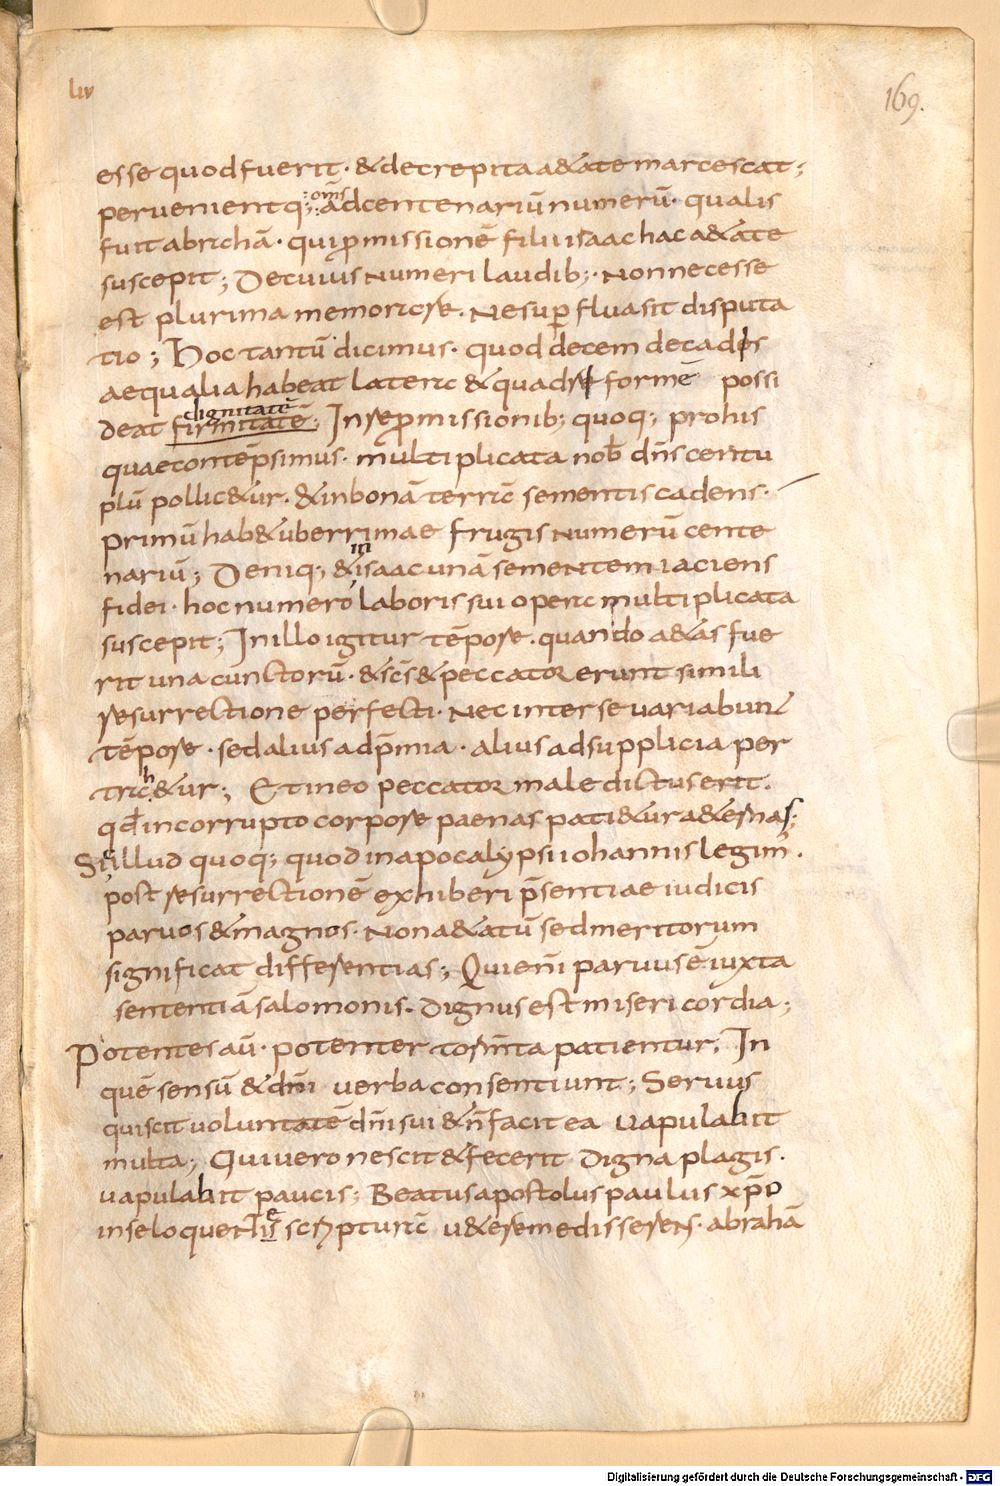 liv
169.
esse quod fuerit · & decrepita a&ate marcescat ;
pervenientq; oms adcentenariū numerū · qualis
fuit abrichā · qui ꝓmissionē filii isaac hac a&ate
suscepit ; De cuius numeri laudib; · non necesse
est plurima memorare . Ne suꝑ flua sit disputa
tio ; Hoc tantū dicimus · quod decem decades
aequalia habeat latera & quadre formē possi
deat firmitatē ; In re ꝓmissionib; quoq; pro his
dignitatē
quae contēpsimus · multiplicata nob̄ dn̄s centu
plū pollic&ur · & in bonā terrā sementis cadens ·
primū hab& uberrimae frugis numerū cente
nariū ; Deniq; & isaac unā sementem iaciens
in
fidei · hoc numero laboris sui opera multiplicata
suscepit ; In illo igitur tēpore . quando a&as fue
rit una cunctorū · & sc̄s & peccator erunt simili
resurrectione perfecti · Nec inter se variabunt
tēpore · sed alius ad p̄mia · alius ad supplicia per
trah&ur ; Et in eo peccator male dictus erit .
qd̄ incorrupto corpore paenas pati&ur a&ernas ;
Sed illud quoq; quod in apocalypsi iohannis legim̄ .
post resurrectionē exhiberi p̄sentiae iudicis
parvos & magnos · Non a&atū sed meritorum
significat differentias ; Qui eni̅ parvus ē iuxta
sententiā salomonis . dignus est misericordia ;
Potentes aū · potenter torm̄ta patientur ; In
quē sensū & dn̄i verba consentiunt ; Servus
qui scit voluntatē dn̄i sui & n̄ facit ea vapulabit
multa ; Qui vero nescit & fecerit digna plagis ·
vapulabit paucis ; Beatus apostolus paulus xp̄o
in se loquente scripturā u&ere me disserens · abrahā
Digitalisierung gefördert durch die Deutsche Forschungsgemeinschaft - DFG